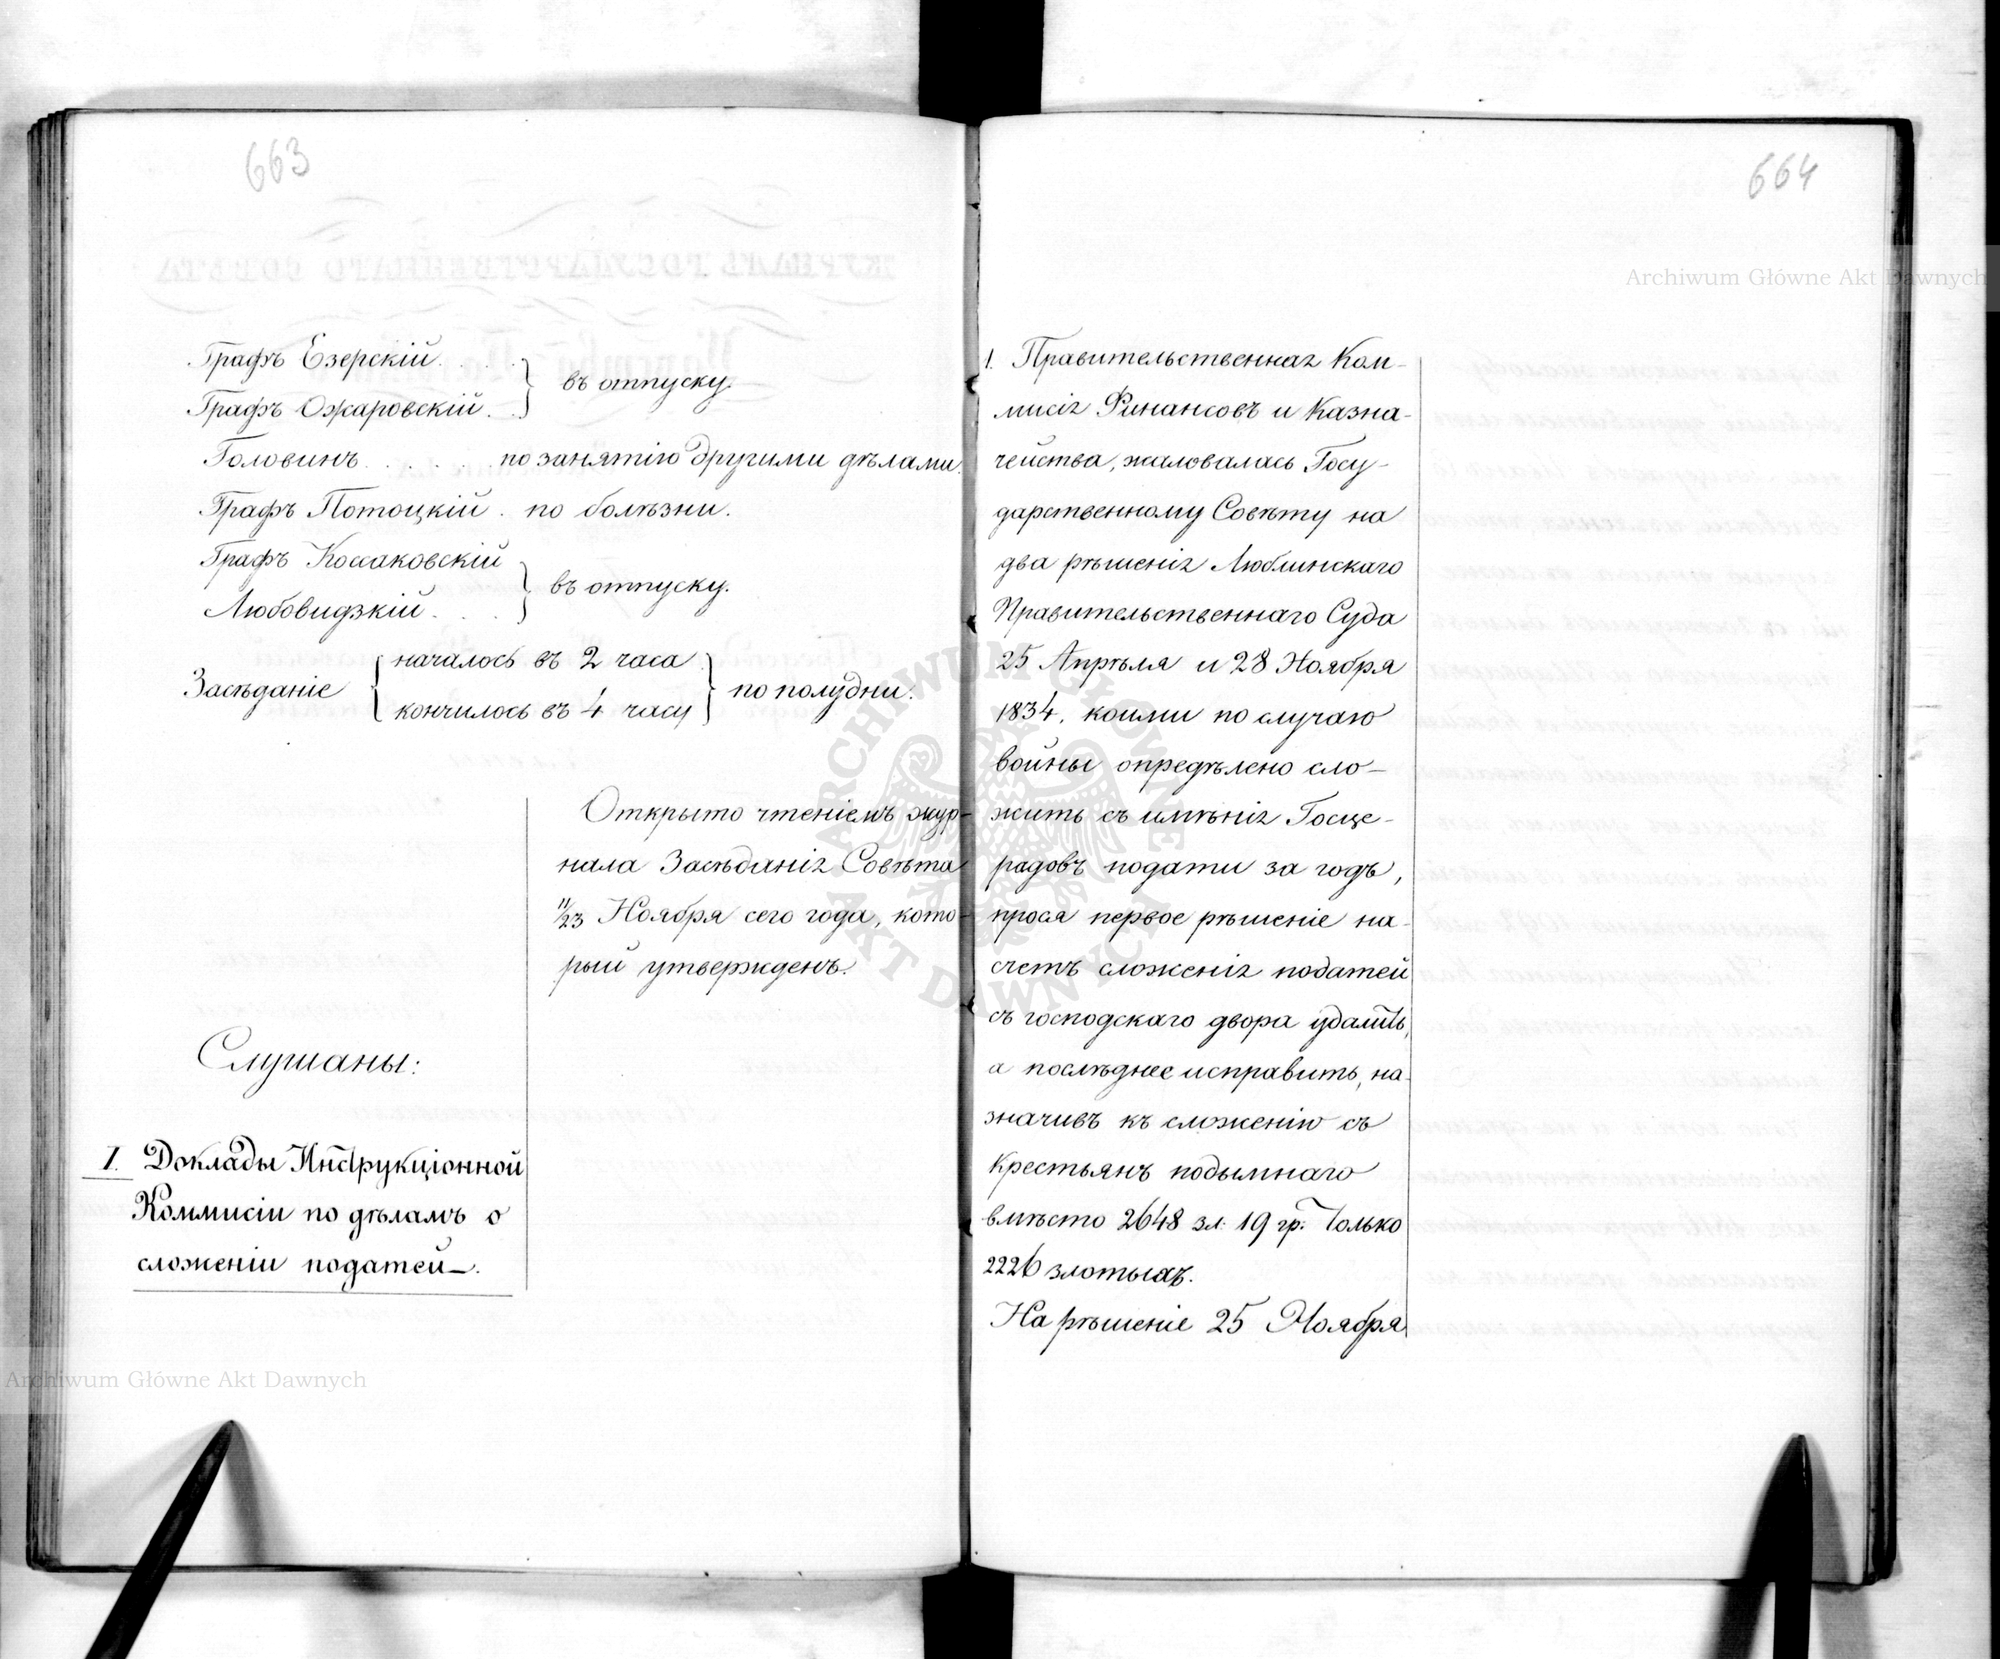 663
Графъ Езерскій . . . .
въ отпуску.
Графъ Ожаровскій . .
Головинъ . . . . . по занятію другими дѣлами.
Графъ Потоцкій . по болѣзни.
Графъ Коссаковскій
въ отпуску.
Любовидзкій . . .
началось въ 2 часа
Засѣданіе по полудни.
кончилось въ 4 часу
Открыто чтеніемъ жур-
нала Засѣданія Совѣта
11/23 Ноября сего года, кото-
рый утвержденъ.
Слушаны:
I. Доклады Инструкціонной
Коммисіи по дѣламъ о
сложеніи податей.
664
1. Правительственная Ком-
мисія Финансовъ и Казна-
чейства, жаловалась Госу-
дарственному Совѣту на
два рѣшенія Люблинскаго
Правительственнаго Суда
25 Апрѣля и 28 Ноября
1834, коими по случаю
войны опредѣлено сло-
жить съ имѣнія Госце-
радовъ подати за годъ,
прося первое рѣшеніе на-
счетъ сложенія податей
съ господскаго двора удалить,
а послѣднее исправить, на-
значивъ къ сложенію съ
крестьянъ подымнаго
вмѣсто 2648 зл: 19 гр: только
2226 злотыхъ.
На рѣшеніе 25 Ноября
Archiwum Główne Akt Dawnych
Archiwum Główne Akt Dawnych
ARCHIWUM GŁÓWNE AKT DAWNYCH